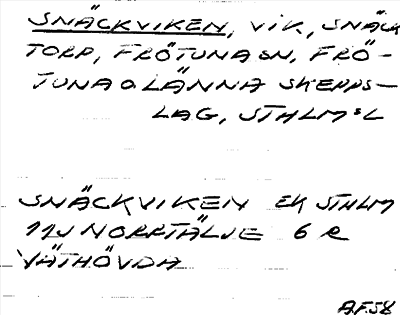 SNÄCKVIKEN, VIK, SNÄCK
TORP, FRÖTUNA SN, FRÖ-
TUNA O LÄNNA SKEPPS-
LAG, STHLMSL
SNÄCKVIKEN EK STHLM
11J NORRTÄLJE 6 e
VÄTHÖVDA
A.F.58